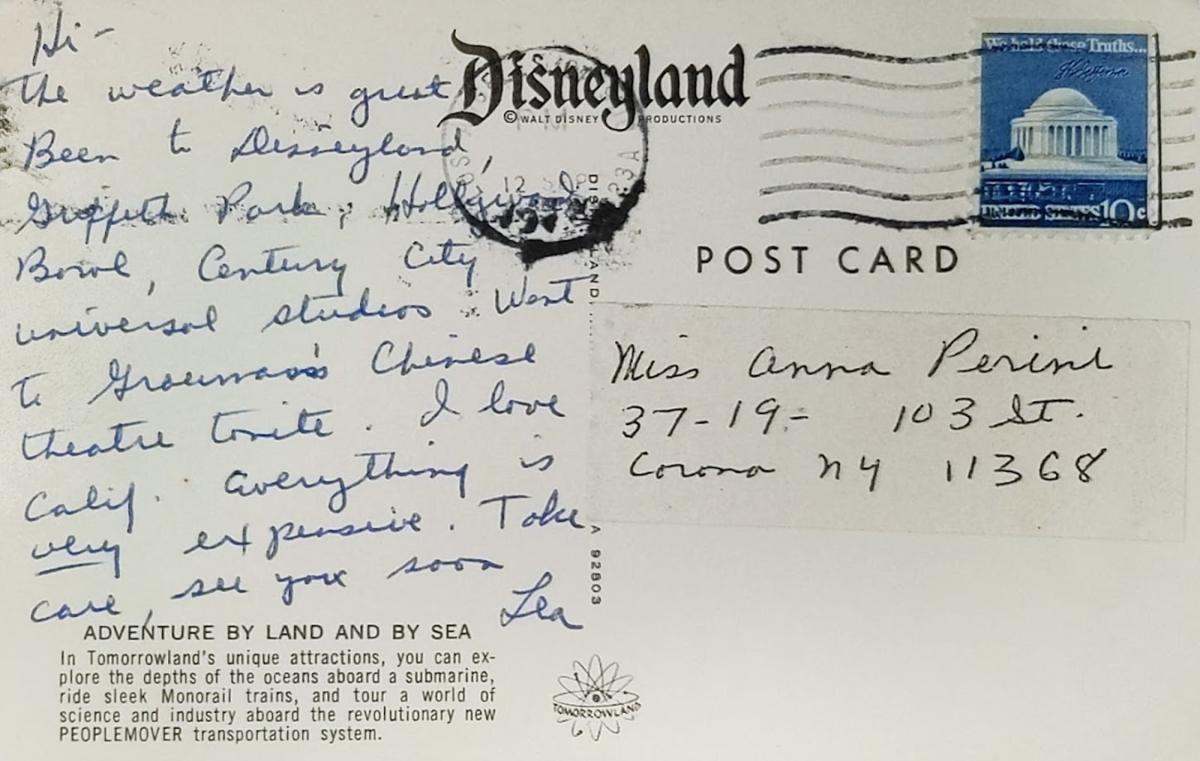 Hi -
The weather is great
Been to Disneyland,
Griffith Park, Hollywood
Bowl, Century City
universal studios. Went
to Graumans Chinese
theatre tonite. I love
Calif. Everything is
very expensive. Take
care, see you soon
Lea
ADVENTURE BY LAND AND BY SEA
In Tomorrowland's unique attractions, you can ex-
plore the depths of the oceans aboard a submarine,
ride sleek Monorail trains, and tour a world of
science and industry aboard the revolutionary new
PEOPLEMOVER transportation system.
Disneyland
© WALT DISNEY PRODUCTIONS
12 SEP
We hold these Truths...
10c
POST CARD
Miss Anna Perini
37-19- 103 St.
Corona NY 11368
A 92803
TOMORROWLAND